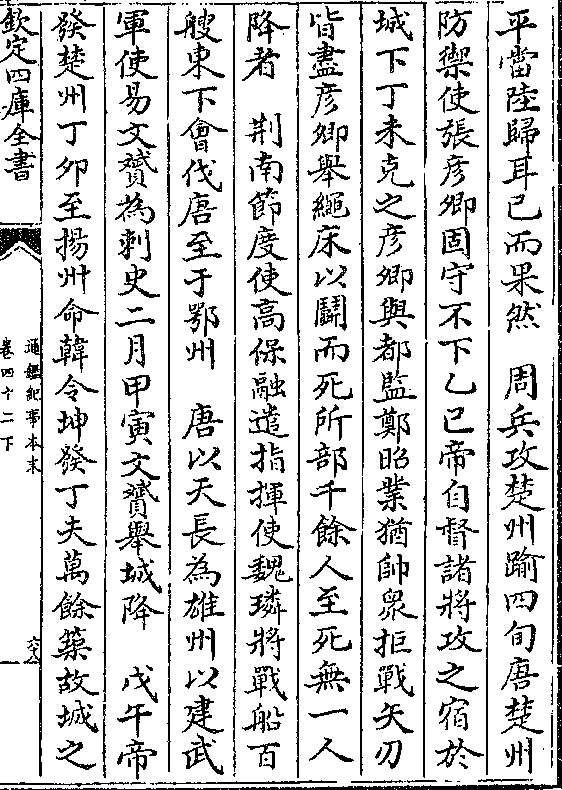 平當陸歸耳已而果然　周兵攻楚州踰四旬唐楚州
防禦使張彦卿固守不下乙巳帝自督諸將攻之宿於
城下丁未克之彦卿與都監鄭昭業猶帥衆拒戰矢刃
皆盡彦卿舉繩床以鬬而死所部千餘人至死無一人
降者　荆南節度使高保融遣指揮使魏璘將戰船百
艘東下會伐唐至于鄂州　唐以天長為雄州以建武
軍使易文贇為刺史二月甲寅文贇舉城降　戊午帝
發楚州丁卯至揚州命韓令坤發丁夫萬餘築故城之
欽定四庫全書
通鑑紀事本末
卷四十二下